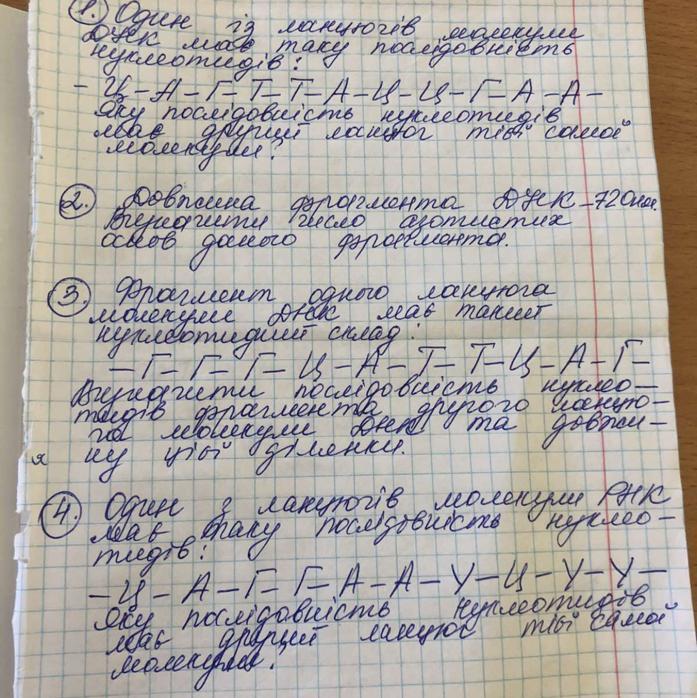 1. Один із ланцюгів молекули
ДНК має таку послідовність
нуклеотидів:
- Ц - А - Г - Т - Т - А - Ц - Ц - Г - А - А -
Яку послідовність нуклеотидів
має другий ланцюг тієї самої
молекули?
2. Довжина фрагмента ДНК - 720нм.
Визначити число азотистих
основ даного фрагмента.
3. Фрагмент одного ланцюга
молекули ДНК має такий
нуклеотидний склад:
- Г - Г - Г - Ц - А - Т - Т - Ц - А - Г -
Визначити послідовність нуклео-
тидів фрагмента другого ланцю-
га молекули ДНК та довжи-
ну цієї ділянки.
я
4. Один з ланцюгів молекули РНК
має таку послідовність нуклео-
тидів:
- Ц - А - Г - Г - А - А - У - Ц - У - У -
Яку послідовність нуклеотидів
має другий ланцюг тієї самої
молекули.